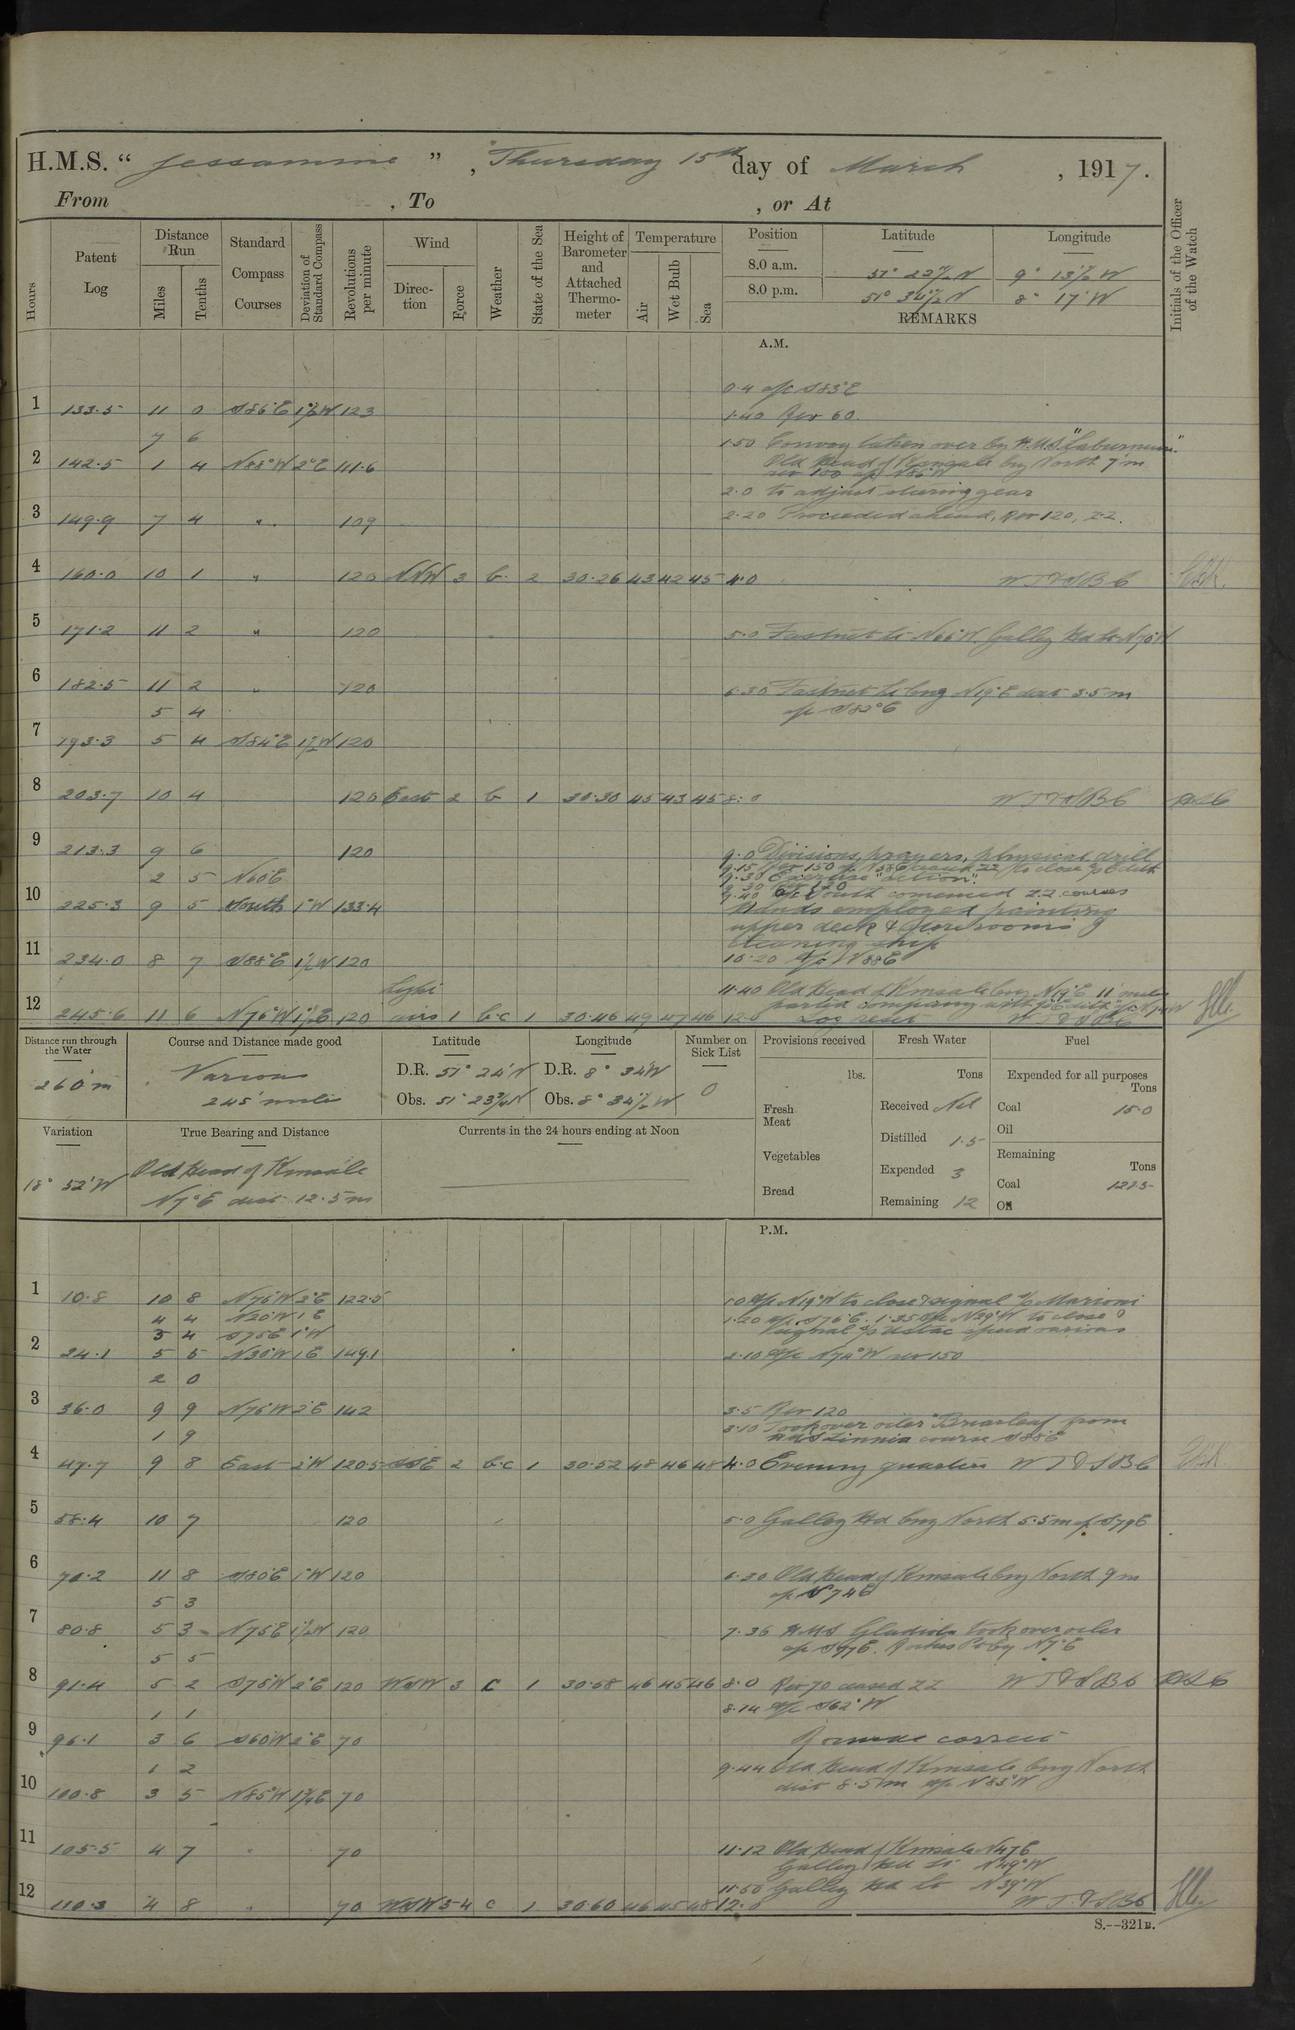 H.M.S. “ Jessamine ” , Thursday 15th day of March , 1917.
From , To , or At
Hours
Patent Log
Distance Run
Miles
Tenths
Standard Compass Courses
Deviation of Standard Compass
Revolutions per minute
Wind
Direction
Force
Weather
State of the Sea
Height of Barometer and Attached Thermometer
Temperature
Air
Wet Bulb
Sea
Position
Latitude
Longitude
8.0 a.m. 51° 22½ N 9° 13½ W
8.0 p.m. 51° 34½ N 8° 17' W
REMARKS
Initials of the Officer of the Watch
A.M.
0.4 a/c S83°E
1 133.5 11 0 S86°E 1½W 123
1.40 Rev 60
7 6
1.50 Convoy taken over by H.M.S. "Laburnum"
2 142.5 1 4 N88°W 2°E 111.6
Old Head of Kinsale brg North 7'm
rev 150 a/c N86°W
2.0 to adjust steering gear
3 149.9 7 4 " 109
2.20 Proceeded ahead, Rev 120, ZZ.
4 160.0 10 1 " 120 NNW 3 b. 2 30.26 43 42 45 4.0 W T & S B C
5 171.2 11 2 " 120
5.0 Fastnet Lt N66°W. Galley Hd Lt N70°W
6 182.5 11 2 " 120
6.30 Fastnet Lt brg N19°E dist 3.5 m
5 4
a/c S82°E
7 193.3 5 4 S84°E 1½W 120
8 203.7 10 4 120 East 2 b 1 30.30 45 43 45 8.0 W T & S B C
9 213.3 9 6 120
9.0 Divisions, prayers, physical drill
2 5 N60E
9.30 Exercise "action".
10 225.3 9 5 South 1°W 133.4
9.40 a/c South commenced ZZ courses
Hands employed painting
upper deck & storerooms &
cleaning ship
11 234.0 8 7 S88°E 1½W 120
10.20 a/c N88E
11.40 Old Head of Kinsale brg N19°E 11 miles
12 245.6 11 6 N76°W 1½E 120 Light airs 1 b.c 1 30.46 49 47 46 12.0 Log reset W T & S B C
Distance run through the Water
260'm
Course and Distance made good
Various
245 miles
Latitude
D.R. 51° 24'N
Obs. 51° 23¾N
Longitude
D.R. 8° 34'W
Obs. 8° 34½ W
Number on Sick List
0
Provisions received
lbs.
Fresh Meat
Vegetables
Bread
Fresh Water
Tons
Received Nil
Distilled 1.5
Expended 3
Remaining 12
Fuel
Expended for all purposes
Tons
Coal 15.0
Oil
Remaining
Tons
Coal
Oil
Variation
18° 52'W
True Bearing and Distance
Old Head of Kinsale
N7°E dist 12.5 m
Currents in the 24 hours ending at Noon
P.M.
1 10.8 10 8 N76°W 2°E 122.5
1.0 a/c N19°W to close & signal s/s Marioni
4 4 N20°W 1°E
3 4 S75E 1°W
1.20 a/c S76°E. 1.35 a/c N29°W to close
2 24.1 5 5 N30°W 1°E 149.1
2.10 a/c N74°W rev 150
2 0
3 36.0 9 9 N76°W 2°E 142
3.5 Rev 120
1 9
3.10 Took over oiler "Briarleaf" from
HMS Zinnia course S88°E
4 47.7 9 8 East 2°W 120.5 SSE 2 b.c 1 30.52 48 46 48 4.0 Evening quarters W T & S B C
5 58.4 10 7 120
5.0 Galley Hd brg North 5.5m a/c S79E
6 70.2 11 8 S80°E 1°W 120
6.30 Old Head of Kinsale brg North 9 m
5 3
a/c N74E
7 80.8 5 3 N75E 1½W 120
7.36 HMS Gladiola took over oiler
5 5
8 91.4 5 2 S75°W 2°E 120 WSW 3 c 1 30.58 46 45 46 8.0 Rev 70 ceased ZZ W T & S B C
1 1
8.14 a/c S62°W
9 96.1 3 6 S60W 2°E 70
Rounds correct
1 2
9.44 Old Head of Kinsale brg North
dist 8.5 m a/c N83°W
10 100.8 3 5 N85°W 1¾E 70
11 105.5 4 7 " 70
11.12 Old Head of Kinsale N47E
Galley Hd Lt N49°W
11.50 Galley Hd Lt N39°W
12 110.3 4 8 " 70 WSW 3-4 c 1 30.60 46 45 48 12.0 W T & S B C
S.--321B.